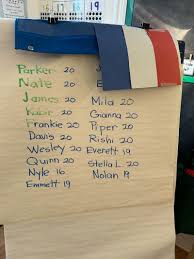 16 17 18 19
Parker 20
Nate 20
James 20
Kabir 20
Frankie 20
Davis 20
Wesley 20
Quinn 20
Nyle 16
Emmett 19
Mila 20
Gianna 20
Piper 20
Rishi 20
Everett 19
Stella L. 20
Nolan 19